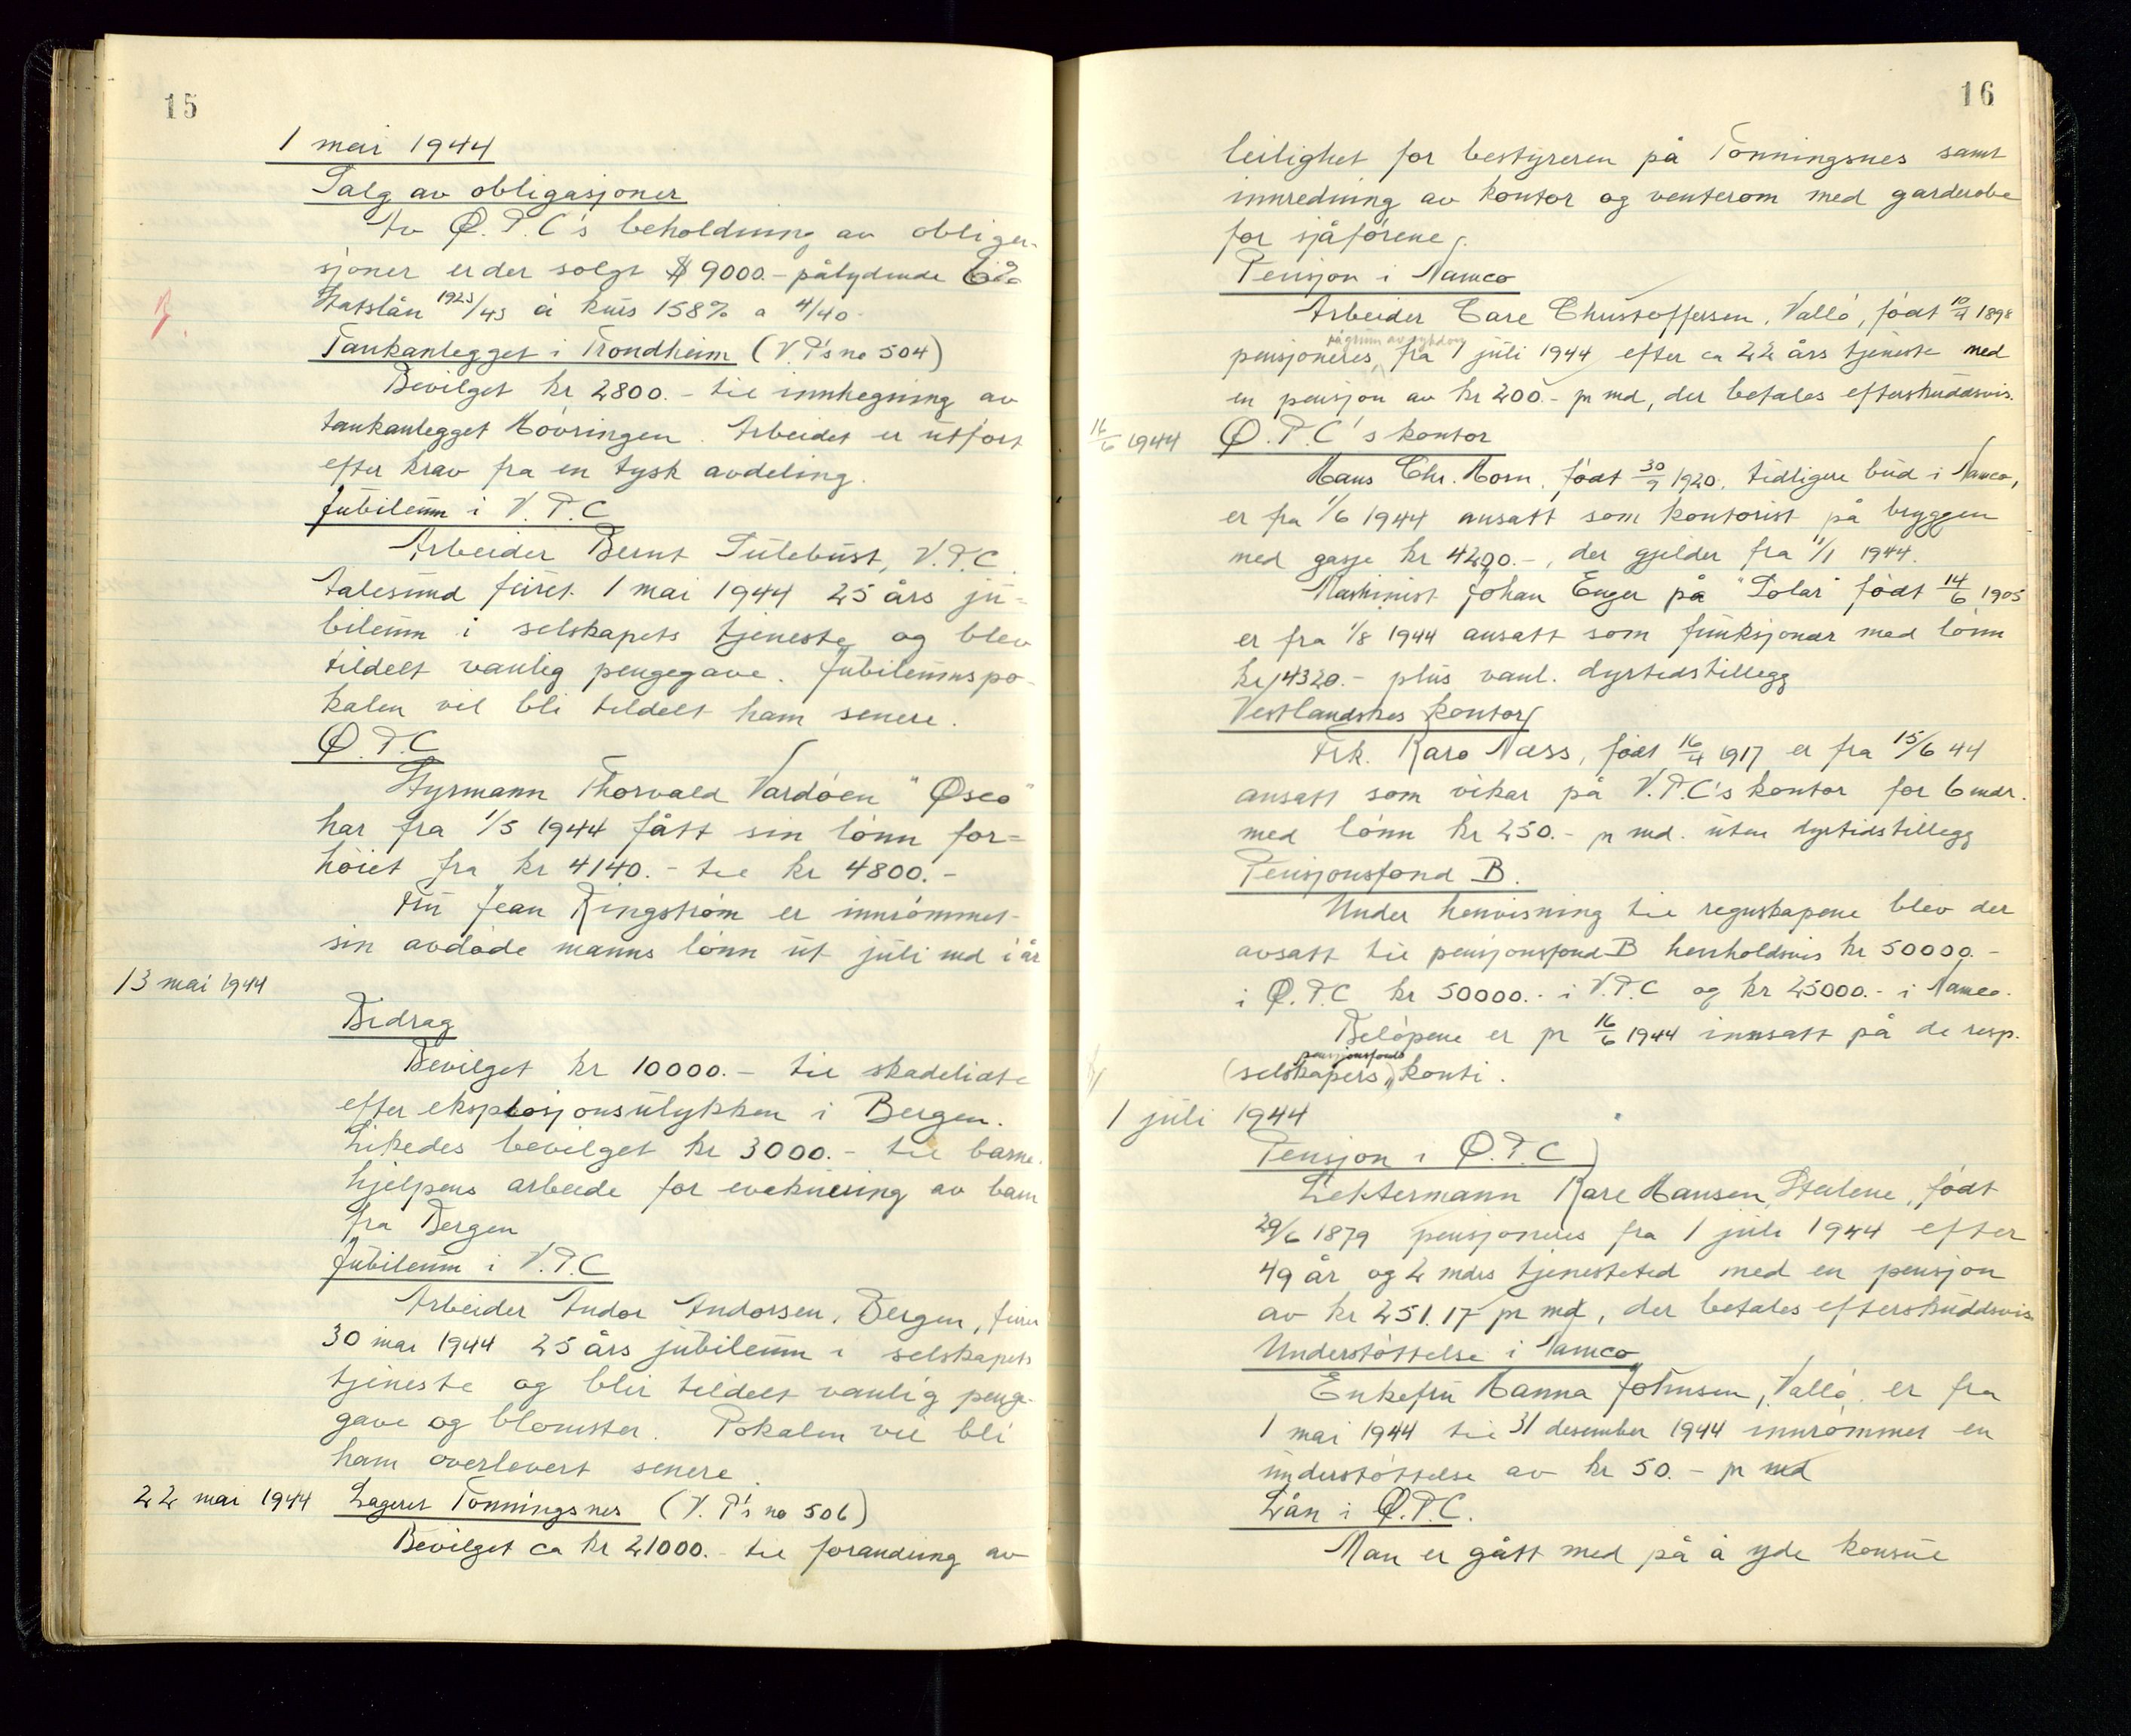 15
1 mai 1944
Salg av obligasjoner
Av Ø.P.C's beholdning av obliga-
sjoner er der solgt $ 9000.- pålydende 6%
Statslån 1923/43 à kurs 158% a 4/40.
Tankanlegget i Trondheim (V.P's no 504)
Bevilget kr 2800.- til innhegning av
tankanlegget Hövringen. Arbeidet er utfört
efter krav fra en tysk avdeling.
Jubileum i V.P.C
Arbeider Bernt Sulebust, V.P.C.
Aalesund feiret 1 mai 1944 25 års ju-
bileum i selskapets tjeneste og blev
tildelt vanlig pengegave. Jubileumspo-
kalen vil bli tildelt ham senere.
Ø.P.C
Styrmann Thorvald Vardöen "Øsco"
har fra 1/5 1944 fått sin lönn for=
höiet fra kr 4140.- til kr 4800.-
Fru Jean Ringström er innrömmet
sin avdöde manns lönn ut juli md i år
13 mai 1944
Bidrag
Bevilget kr 10000.- til skadelidte
efter eksplosjonsulykken i Bergen.
Likedes bevilget kr 3000.- til barne-
hjelpens arbeide for evakuering av barn
fra Bergen
Jubileum i V.P.C
Arbeider Andor Andorsen, Bergen, feirer
30 mai 1944 25 års jubileum i selskapets
tjeneste og blir tildelt vanlig penge-
gave og blomster. Pokalen vil bli
ham overlevert senere.
22 mai 1944 Lageret Tonningsnes (V.P's no 506)
Bevilget ca kr 21000.- til forandring av
16
leilighet for bestyreren på Tonningsnes samt
innredning av kontor og venterom med garderobe
for sjåförene.
Pensjon i Namco
Arbeider Care Christoffersen, Vallö, födt 10/4 1898
på grunn av sykdom
pensjoneres, fra 1 juli 1944 efter ca 22 års tjeneste med
en pensjon av kr 200.- pr md, der betales efterskuddsvis.
16/6 1944 Ø.P.C's kontor
Hans Chr. Horn, födt 30/9 1920, tidligere bud i Namco,
er fra 1/6 1944 ansatt som kontorist på bryggen
med gasje kr 4200.-, der gjelder fra 1/1 1944.
Maskinist Johan Enger på "Solar" födt 14/6 1905
er fra 1/8 1944 ansatt som funksjonær med lönn
kr 4320.- plus vanl. dyrtidstillegg
Vestlandskes kontor
Frk. Karo Næss, födt 16/4 1917 er fra 15/6 44
ansatt som vikar på V.P.C's kontor for 6 mdr.
med lönn kr 250.- pr md. uten dyrtidstillegg
Pensjonsfond B.
Under henvisning til regnskapene blev der
avsatt til pensjonsfond B henholdsvis kr 50000.-
i Ø.P.C kr 50000.- i V.P.C og kr 25000.- i Namco.
Belöpene er pr 16/6 1944 innsatt på de resp.
pensjonsfonds
(selskapers) konti.
1 juli 1944
Pensjon i Ø.P.C
Lektermann Kare Hansen, Steilene, födt
29/6 1879 pensjoneres fra 1 juli 1944 efter
49 år og 2 mdrs tjenestetid med en pensjon
av kr 251.17 pr md, der betales efterskuddsvis.
Understöttelse i Namco
Enkefru Hanna Johnsen, Vallö, er fra
1 mai 1944 til 31 desember 1944 innrömmet en
understöttelse av kr 50.- pr md
Lån i Ø.P.C.
Man er gått med på å yde konsul